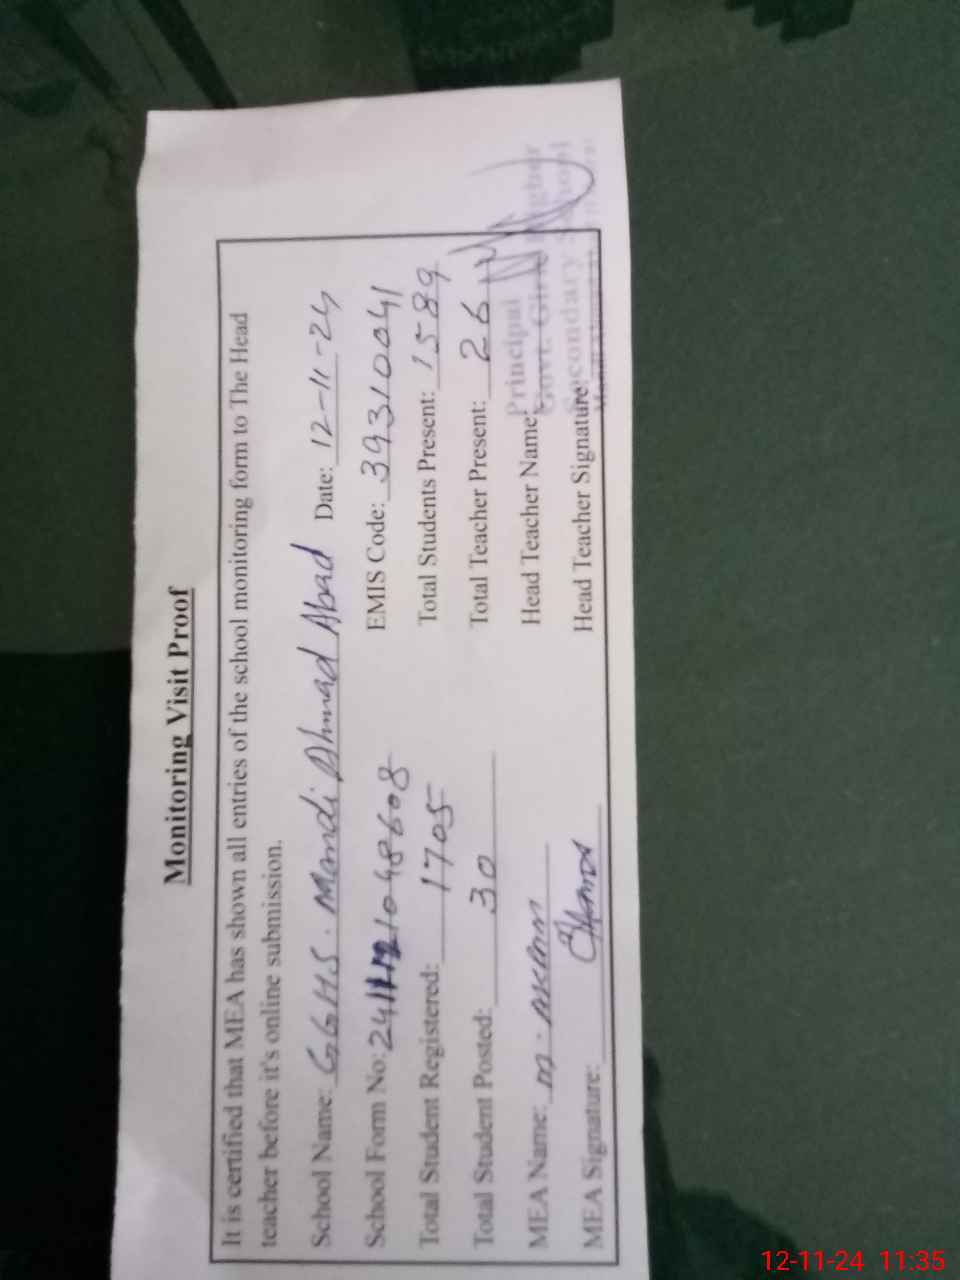 Monitoring Visit Proof
It is certified that MEA has shown all entries of the school monitoring form to The Head
teacher before it's online submission.
School Name: GGHS. Mandi Ahmad Abad Date: 12-11-24
School Form No: EMIS Code: 39310041
Total Student Registered: 1705 Total Students Present: 1589
Total Student Posted: 30 Total Teacher Present: 26
MEA Name: M. Akram Head Teacher Name:
MEA Signature: Head Teacher Signature
Principal
Govt. Girls Higher
Secondary School
12-11-24 11:35